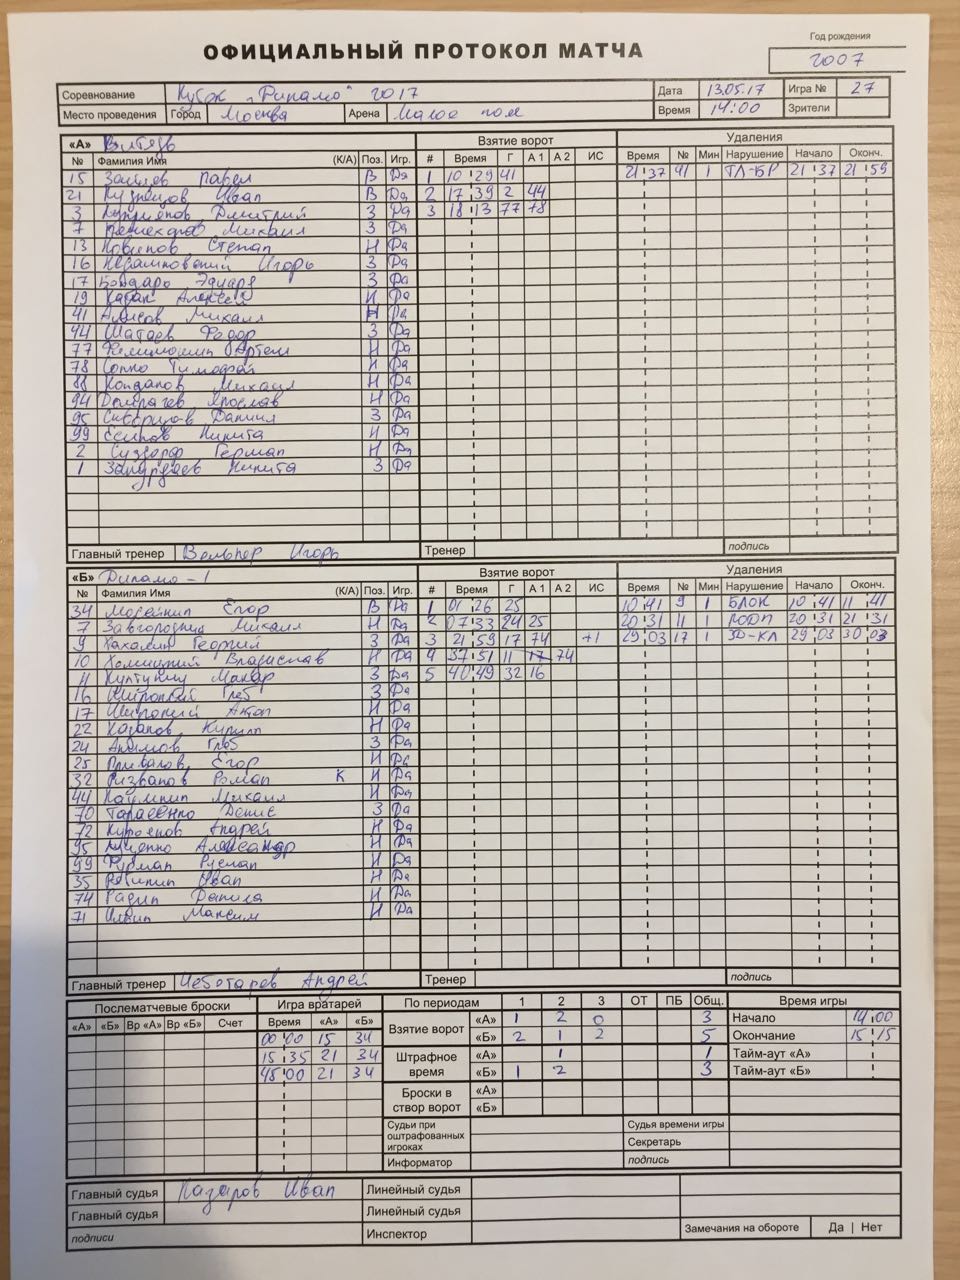 Год рождения
ОФИЦИАЛЬНЫЙ ПРОТОКОЛ МАТЧА
2007
Соревнование Кубок "Динамо" 2017 Дата 13.05.17 Игра № 27
Место проведения Город Москва Арена Малое поле Время 14:00 Зрители
«А» Витязь Взятие ворот Удаления
№ Фамилия Имя (К/А) Поз. Игр. # Время Г А 1 А 2 ИС Время № Мин Нарушение Начало Оконч.
15 Зайцев Павел В Да 1 10 29 41 21 37 41 1 ТЛ-БР 21 37 21 59
21 Кузнецов Иван В Да 2 17 39 2 44
3 Куприянов Дмитрий З Да 3 18 13 77 78
7 Михаил З Да
13 Степан Н Да
16 Игорь З Да
17 Бондарь Эдуард З Да
19 Алексей Н Да
41 Михаил Н Да
44 Шатаев Федор З Да
77 Артем Н Да
78 Сопко Тимофей Н Да
88 Михаил Н Да
94 Ярослав Н Да
95 Скворцов Даниил З Да
99 Есипов Никита Н Да
2 Герман Н Да
1 Никита З Да
Главный тренер Вельпер Игорь Тренер подпись
«Б» Динамо-1 Взятие ворот Удаления
№ Фамилия Имя (К/А) Поз. Игр. # Время Г А 1 А 2 ИС Время № Мин Нарушение Начало Оконч.
34 Мосейкин Егор В Да 1 01 26 25 10 41 9 1 БЛОК 10 41 11 41
7 Завгородний Михаил Н Да 2 07 33 24 25 20 31 11 1 20 31 21 31
9 Георгий З Да 3 21 59 17 74 +1 29 03 17 1 29 03 30 03
10 Хомицкий Владислав Н Да 4 37 51 11 17 74
11 Макар З Да 5 40 49 32 16
16 Широкий Глеб З Да
17 Широкий Антон Н Да
22 Кирилл Н Да
24 Акимов Глеб З Да
25 Привалов Егор Н Да
32 Ризванов Роман К Н Да
44 Наумкин Михаил Н Да
70 Тарасенко Денис З Да
72 Андрей Н Да
95 Куценко Александр Н Да
99 Фурман Руслан Н Да
35 Иван Н Да
74 Гадип Данила Н Да
71 Илькин Максим Н Да
Главный тренер Чеботарев Андрей Тренер подпись
Послематчевые броски Игра вратарей По периодам 1 2 3 ОТ ПБ Общ. Время игры
«А» «Б» Вр «А» Вр «Б» Счет Время «А» «Б» Взятие ворот «А» 1 2 0 3 Начало 14 00
00 00 15 34 «Б» 2 1 2 5 Окончание 15 15
15 35 21 34 Штрафное время «А» 1 1 Тайм-аут «А»
45 00 21 34 «Б» 1 2 3 Тайм-аут «Б»
Броски в створ ворот «А»
«Б»
Судьи при оштрафованных игроках Судья времени игры
Секретарь
Информатор подпись
Главный судья Назаров Иван Линейный судья
Главный судья Линейный судья
подписи Инспектор Замечания на обороте Да | Нет